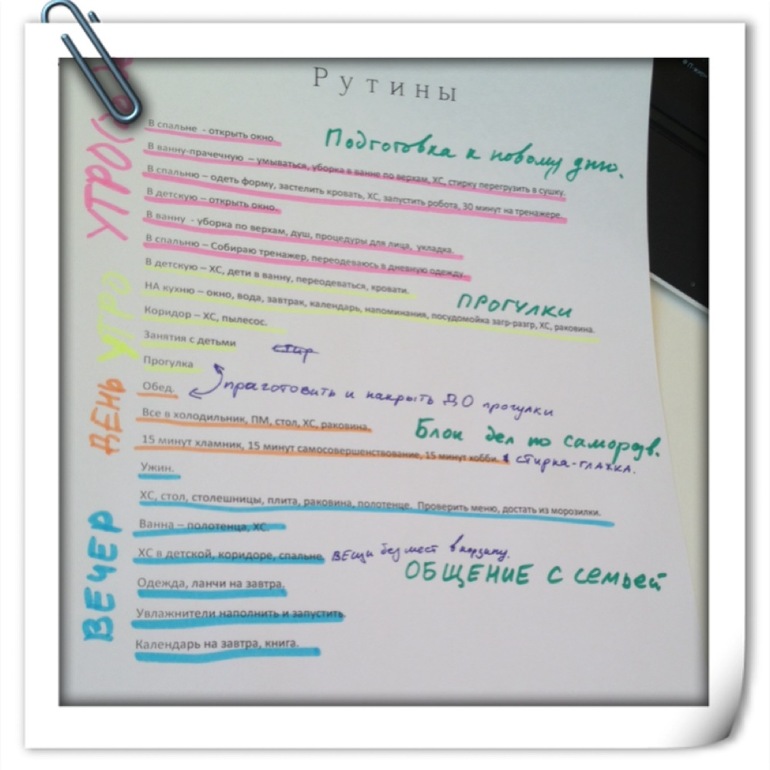 Рутины
УТРО
В спальне - открыть окно.
Подготовка к новому дню.
В ванну-прачечную – умываться, уборка в ванне по верхам, ХС, стирку перегрузить в сушку.
В спальню – одеть форму, застелить кровать, ХС, запустить робота, 30 минут на тренажере.
В детскую – открыть окно.
В ванну - уборка по верхам, душ, процедуры для лица, укладка.
В спальню – Собираю тренажер, переодеваюсь в дневную одежду.
УТРО
В детскую – ХС, дети в ванну, переодеваться, кровати.
ПРОГУЛКИ
НА кухню – окно, вода, завтрак, календарь, напоминания, посудомойка загр-разгр, ХС, раковина.
Коридор – ХС, пылесос.
Занятия с детьми
Прогулка
ДЕНЬ
Обед.
приготовить и накрыть ДО прогулки
Все в холодильник, ПМ, стол, ХС, раковина.
Блок дел по саморазв.
15 минут хламник, 15 минут самосовершенствование, 15 минут хобби.
стирка-глажка.
ВЕЧЕР
Ужин.
ХС, стол, столешницы, плита, раковина, полотенце. Проверить меню, достать из морозилки.
Ванна – полотенца, ХС.
ХС в детской, коридоре, спальне.
ВЕЩи без мест в корзину.
ОБЩЕНИЕ С семьей
Одежда, ланчи на завтра.
Увлажнители наполнить и запустить.
Календарь на завтра, книга.